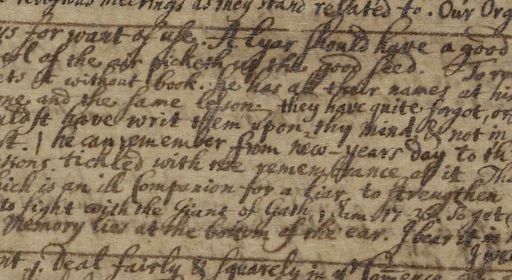 religious meetings as they stand related to. Our Org
ys for want of use. A lyar should have a good
of the air picketh up the good seed. To re
ets it without book. he has all their names at his
one and the same lesson. they have quite forgot, or
uldst have writ them upon thy mind & not in
st. he can remember from new-years day to th
tickled with the remembrance of it
hich is an ill Companion for a liar to strengthen
to fight with the Giant of Gath, 1 Sam. 17. So get
Memory lies at the bottom of the ear. I bear it in
Deal fairly & squarely in